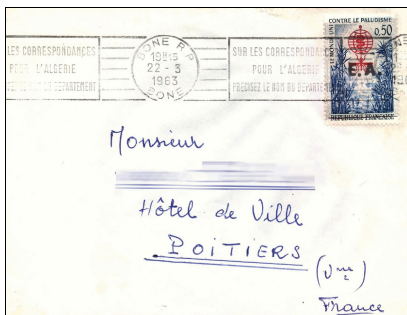 LES CORRESPONDANCES
POUR L'ALGERIE
LE NOM DU DEPARTEMENT
BONE R.P.
19H15
22-3
1963
BONE
SUR LES CORRESPONDANCES
POUR L'ALGERIE
PRECISEZ LE NOM DU DEPARTEMENT
LE MONDE UNI CONTRE LE PALUDISME
0,50
E.A.
REPUBLIQUE FRANCAISE
Monsieur
Hôtel de Ville
POITIERS
(Vne)
France